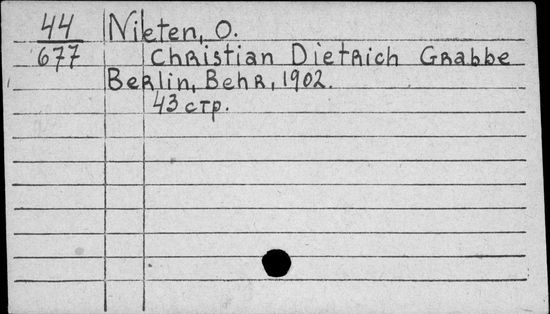 44 Nieten, O.
677 Christian Dietrich Grabbe
Berlin, Behr, 1902.
43 стр.